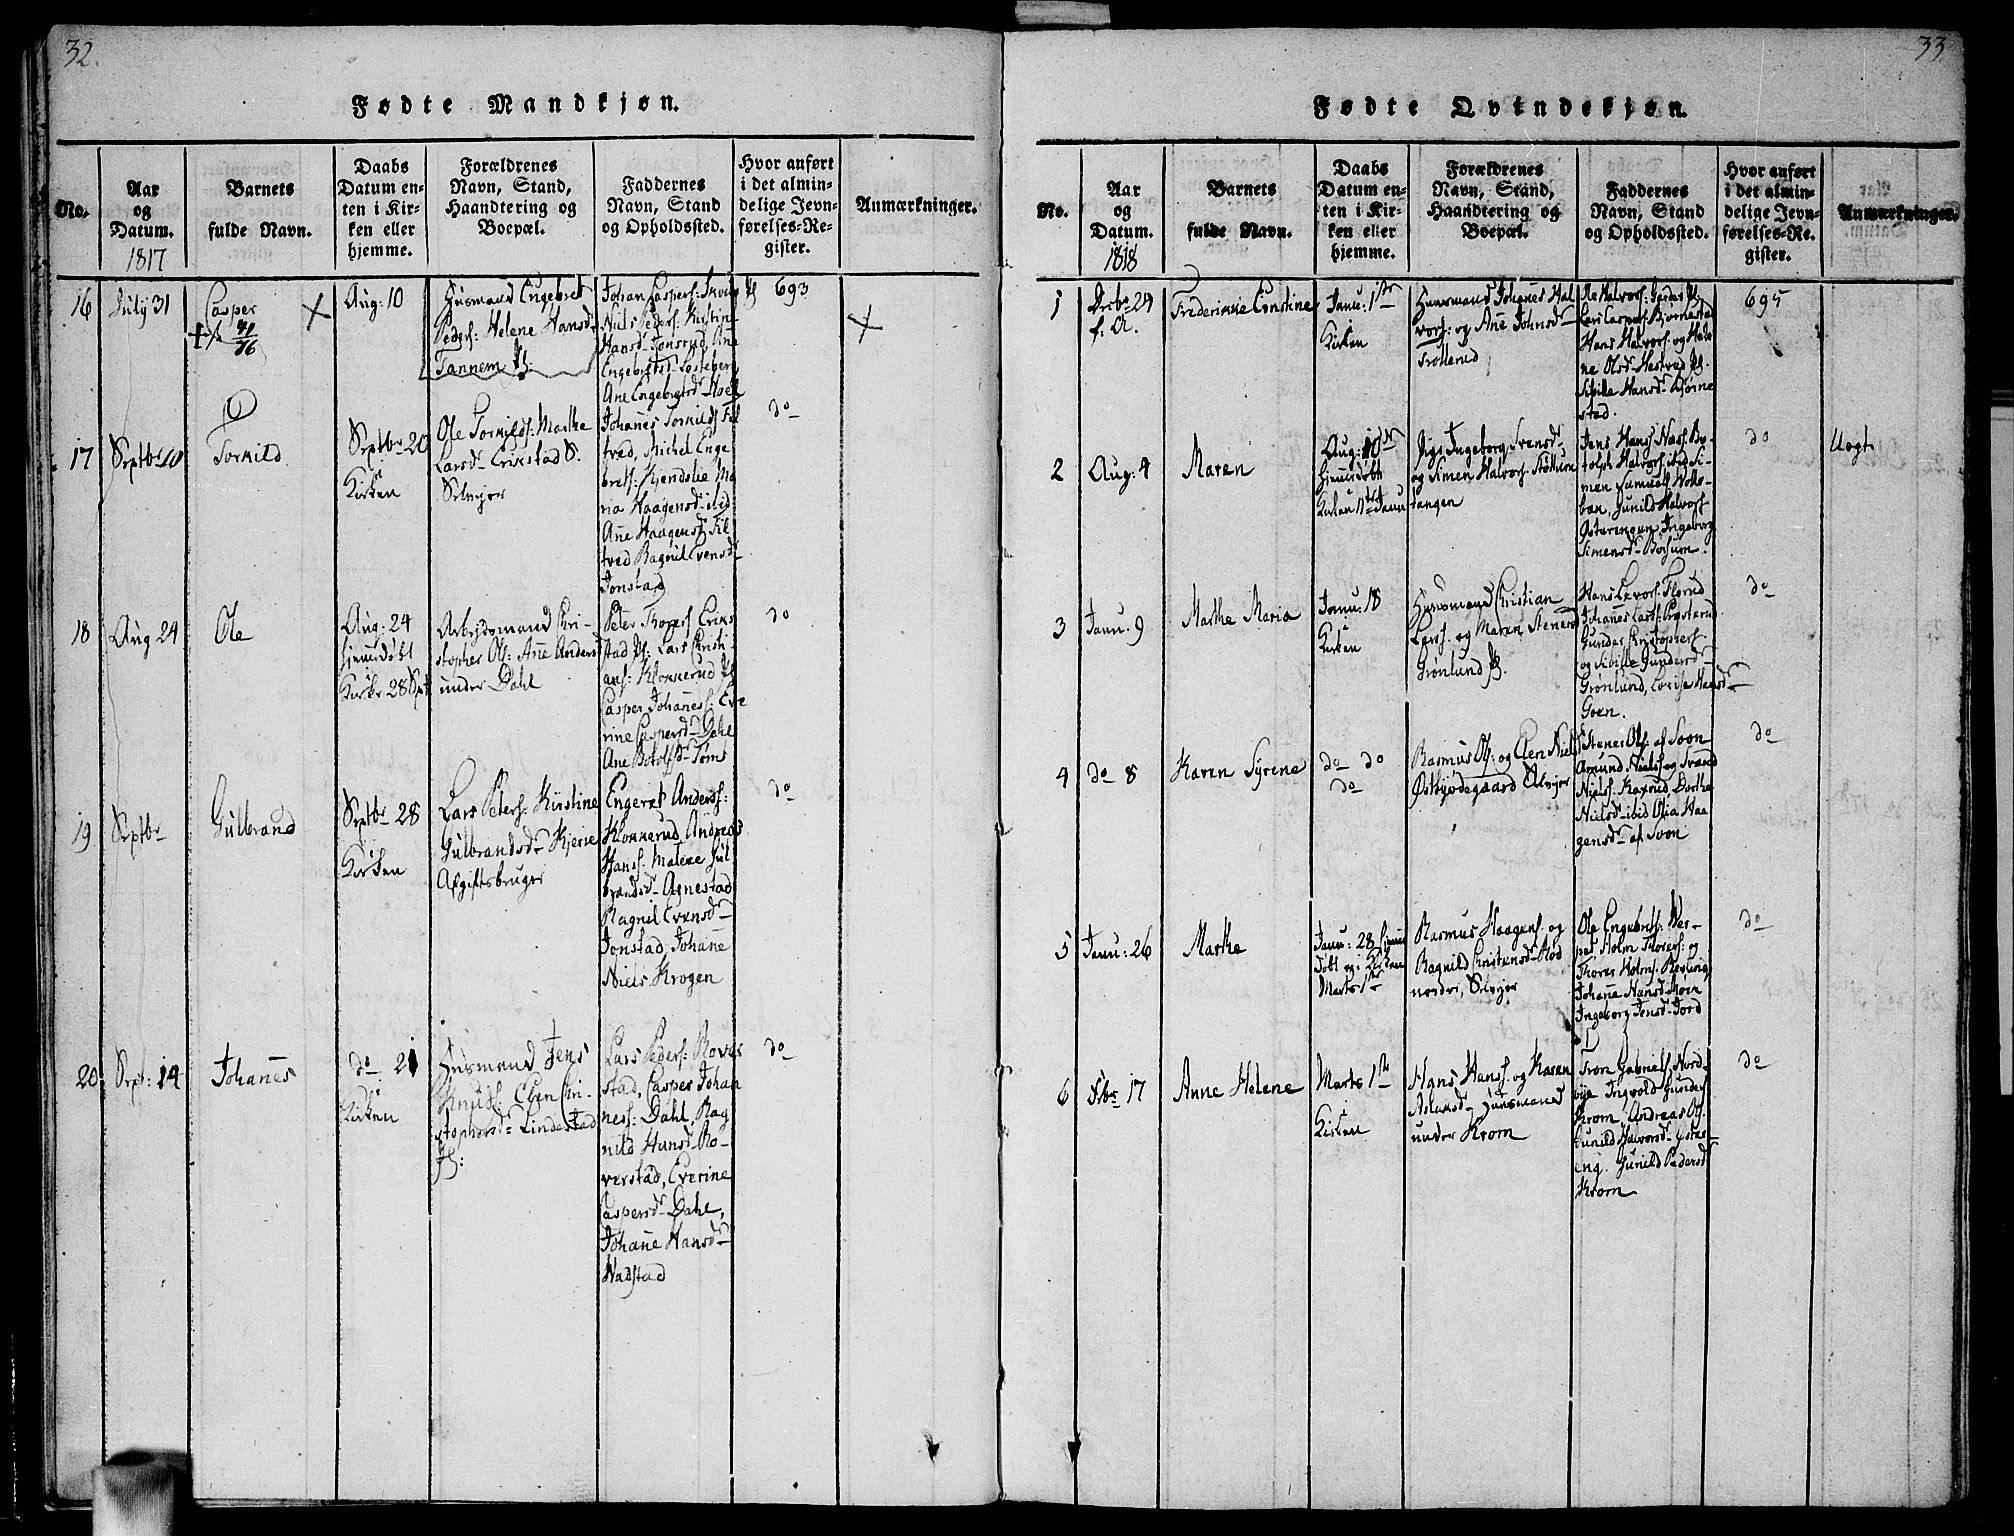 32.
Fødte Mandkjøn.
No.
Aar
og
Datum.
1817
Barnets
fulde Navn.
Daabs
Datum en-
ten i Kir-
ken eller
hjemme.
Forældrenes
Navn, Stand,
Haandtering og
Boepæl.
Faddernes
Navn, Stand
og Opholdssted.
Hvor anført
i det almin-
delige Jevn-
førelses-Re-
gister.
Anmærkninger.
16
July 31
Casper
Aug: 10
Huusmand Engebret
Peders: Helene Hansd
Tannem
Johan Caspers:
Niels Peders: Kirstine
Hansd Tonsrud, Ane
Engebretsd
Ane Engebretsd
693
17
Septbr 10
Torkild
Septbr 20
Kirken
Ole Torkilds: Marthe
Larsd Erikstad S.
Selvejer
Johanes Torkilds Fil
tved, Michel Enge
brets: Kjendslie Ma
ria Haagensd ibid
Ane Haagensd Fil
tved Ragnil Evensd
Jonstad
do
18
Aug 24
Ole
Aug: 24
hjemedøbt
Kirke 28 Spt
Arbejdsmand Chri-
stopher Ols: Ane Andersd
under Dahl
Peter Thores Eriks
stad Lars Christi-
ans: Klokkerud
Casper Johanes: Eve
rine Caspersd Dahl
Ane Botolfsd Toms
do
19
Septbr
Gulbrand
Septbr 28
i
Kirken
Lars Peters: Kirstine
Gulbrandsd Kjerne
Afgiftsbruger
Engeret Anders:
Klokkerud, Andreas
Hans: Malene Gul
brandsd Agnestad
Ragnil Evensd
Jonstad, Johane
Niels Krogen
do
20
Sept: 14
Johanes
do 21
i
Kirken
Husmand Jens
Knuds: Elen Chri-
stophersd Lindestad
Lars Peders: Rover
stad, Casper Johan
nes: Dahl, Rag
nild Hansd Ro-
verstad, Everine
Caspersd Dahl,
Johane Hansd
Wadstad
do
33
Fødte Qvindekjøn.
No.
Aar
og
Datum.
1818
Barnets
fulde Navn.
Daabs
Datum en-
ten i Kir-
ken eller
hjemme.
Forældrenes
Navn, Stand,
Haandtering og
Boepæl.
Faddernes
Navn, Stand
og Opholdssted.
Hvor anført
i det almin-
delige Jevn-
førelses-Re-
gister.
Anmærkninger.
1
Decbr 24
f: A.
Frederikke Constine
Janu: 1ste
Kirken
Huusmand Johanes Hal
vors: og Ane Johnsd
Trollerud
Ole Halvors:
Lars Caspers: Bjørnestad
Hans Halvors. og Hele
ne Olsd Hestved
Sibille Hansd Bjørne
stad.
695
2
Aug: 4
Maren
Aug: 10de
hjemedøbt
Kirken 11te Janu
Pige Ingeborg Svensd
og Simen Halvors Støttum
tangen
Jens Hans Nass. Bo
tolph Halvors ibid Si-
men Samuels Woll-
ban, Gunild Halvors
Østerengen Ingeborg
Simensd Børsum.
do
Uægt
3
Janu: 9
Marthe Maria
Janu: 18
i
Kirken
Huusmand Christian
Lars: og Maren Stenersd
Grønlund
Hans Levors: Florud
Johanes Lars: Prosterud
Gunder Christophers:
og Sibille Gundersd
Grønlund, Lovise Hansd
Goen.
do
4
do 8
Karen Syrene
do do
do
Rasmus Ol: og Elen Niels
Østbyødegaard Selvejer
Stener Ols: af Soon
Amund Niels: og Svend
Niels: Kaxrud, Dorthe
Nielsd ibid Olia Haa
gensd af Soon
do
5
Janu: 26
Marthe
Janu: 28 hjem
døbt og i Kirken
Marts 1ste
Rasmus Haagens. og
Ragnild Christensd Rød
nordre, Selvejer
Ole Engebrets: Ner-
pes Holm Thores: og
Thores Holms: Revling,
Johane Hansd Moen
Ingeborg Jensd Jord
do
6
Fbr 17
Anne Helene
Marts 1ste
i
Kirken
Hans Hans: og Karen
Aslaksd Huusmand
under Krom
Tron Gabriels: Nord-
bye Ingvold Gunders
Krom, Andreas Ol:
Gunild Halvorsd Øster-
eng. Gunild Pedersd
Krom
do